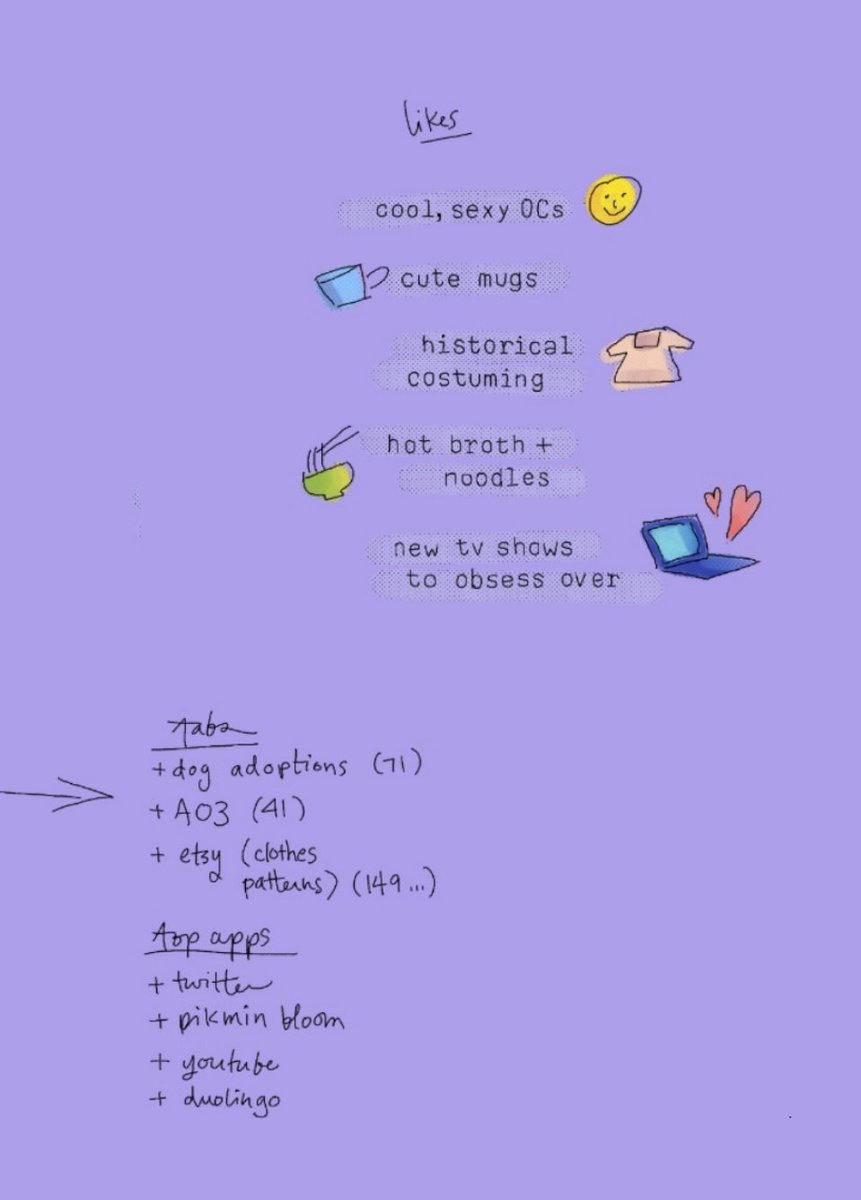 likes
cool, sexy OCs
cute mugs
historical
costuming
hot broth +
noodles
new tv shows
to obsess over
tabs
+ dog adoptions (71)
+ AO3 (41)
+ etsy (clothes
patterns) (149...)
Top apps
+ twitter
+ pikmin bloom
+ youtube
+ duolingo